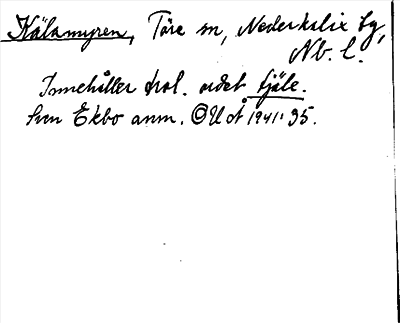 Kälamyren, Töre sn, Nederkalix tg,
Nb. l.
Innehåller trol. ordet tjäle.
Sven Ekbo anm. OUÅ 1941: 95.